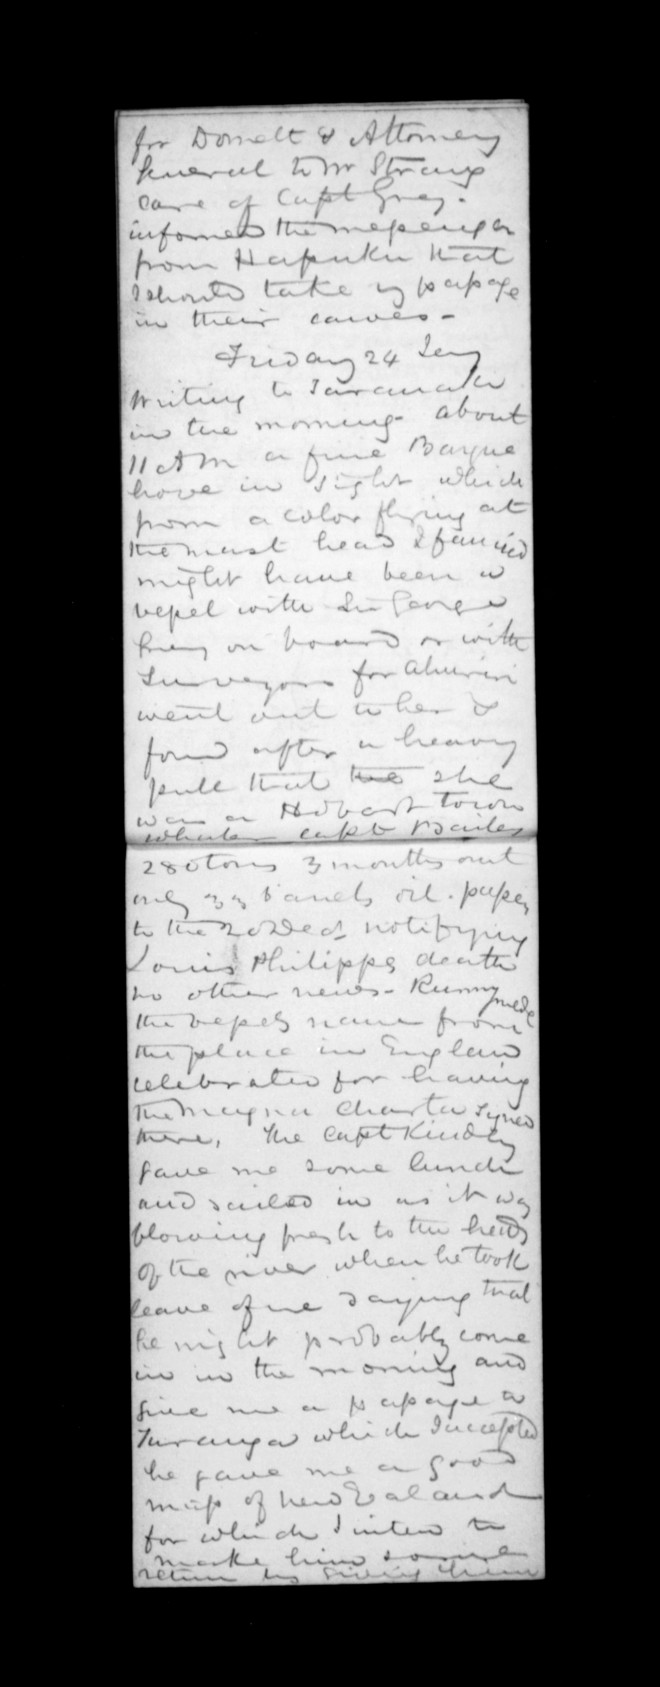 for Domett & Attorney
General to Mr Strang
care of Capt Grey.
informed the messenger
from Hapuku that
I should take my passage
in their canoes -
Friday 24 Jany
Writing to Taranaki
in the morning - about
11 AM a fine Barque
hove in sight which
from a color flying at
the mast head I fancied
might have been a
vessel with Sir George
Grey on board or with
Surveyors for Ahuriri
went out to her &
found after a heavy
pull that she
was a Hobart town
whaler capt Bailey
280 tons 3 months out
only 33 barrels oil. papers
to the 20 Decr notifying
Louis Philippes death
no other news - Runnymede
the vessels name from
the place in England
celebrated for having
the Magna Charta signed
there, The Capt Kindly
gave me some lunch
and sailed in as it was
blowing fresh to the heads
of the river when he took
leave of me saying that
he might probably come
in in the morning and
give me a passage to
Turanga which I accepted
he gave me a good
map of New Zealand
for which I intend to
make him some
return by giving him